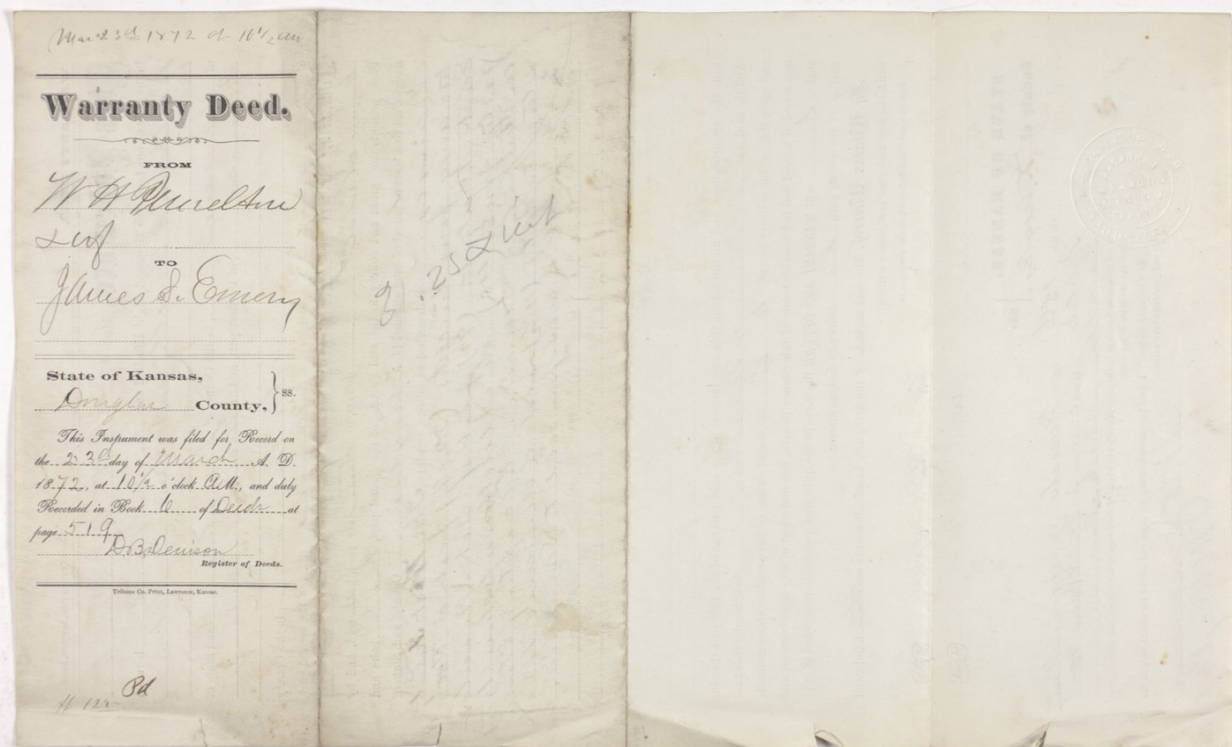 Mar 23d 1872 at 10 1/2 am
Warranty Deed.
FROM
W H
& wf
TO
James S. Emery
State of Kansas,
Douglas County, } ss.
This Instrument was filed for Record on
the 23d day of March A. D.
1872, at 10 1/2 o'clock A M., and duly
Recorded in Book 6 of Deeds at
page 519
D. B. Denison
Register of Deeds.
Tribune Co. Print, Lawrence, Kansas.
Pd
.25